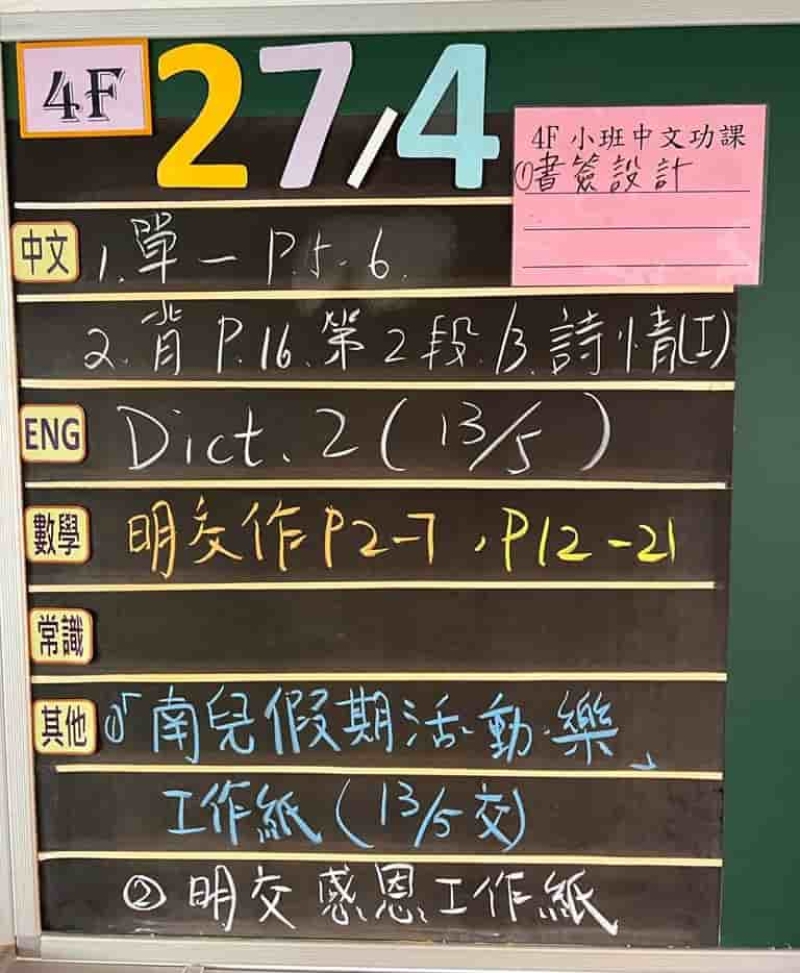 4F
27/4
4F 小班中文功課
①書簽設計
中文 1. 單一 P.5-6.
2. 背 P.16. 第2段. 3. 詩情(工)
ENG Dict. 2 (13/5)
數學 明交作 P2-7, P12-21
常識
其他 ①「南兒假期活動·樂」
工作紙 (13/5交)
② 明交感恩工作紙